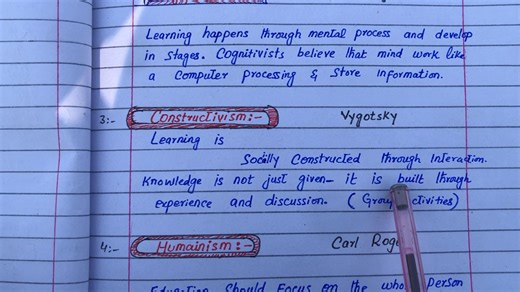 Learning happens through mental process and develop
in stages. Cognitivists believe that mind work like
a computer processing & store information.
3:- Constructivism:- Vygotsky
Learning is
Socilly Constructed through Interaction.
Knowledge is not just given- it is built through
experience and discussion. (Group
4:- Humainism:- Carl
Education Should Focus on the whole Person